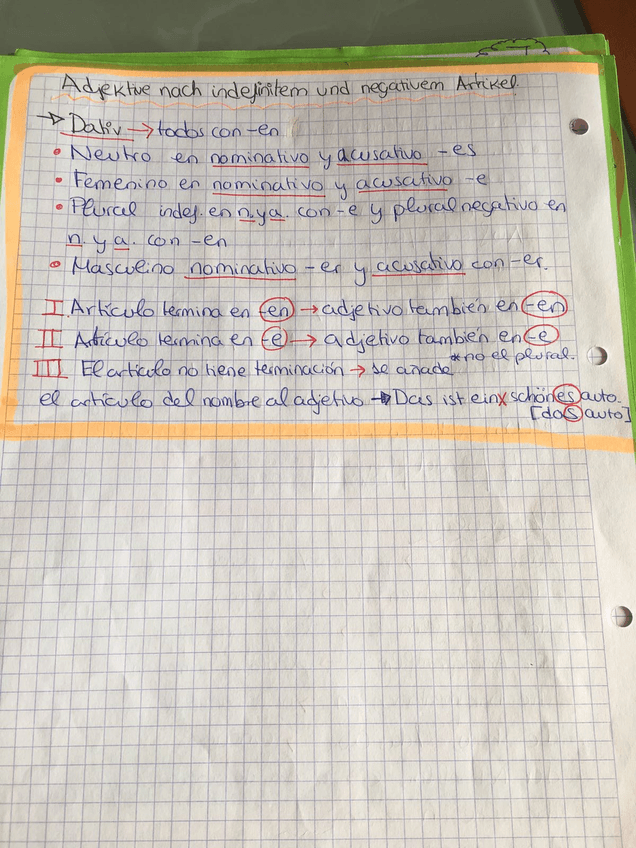 Adjektive nach indefinitem und negativem Artikel.
→ Dativ → todos con -en
• Neutro en nominativo y acusativo -es
• Femenino en nominativo y acusativo -e
• Plural indef. en n. y a. con -e y plural negativo en
n. y a. con -en
• Masculino nominativo -er y acusativo con -er.
I. Artículo termina en -en → adjetivo también en -en
II Artículo termina en -e → adjetivo también en -e
*no el plural.
III El artículo no tiene terminación → se añade
el artículo del nombre al adjetivo → Das ist einx schönes auto.
[das auto]